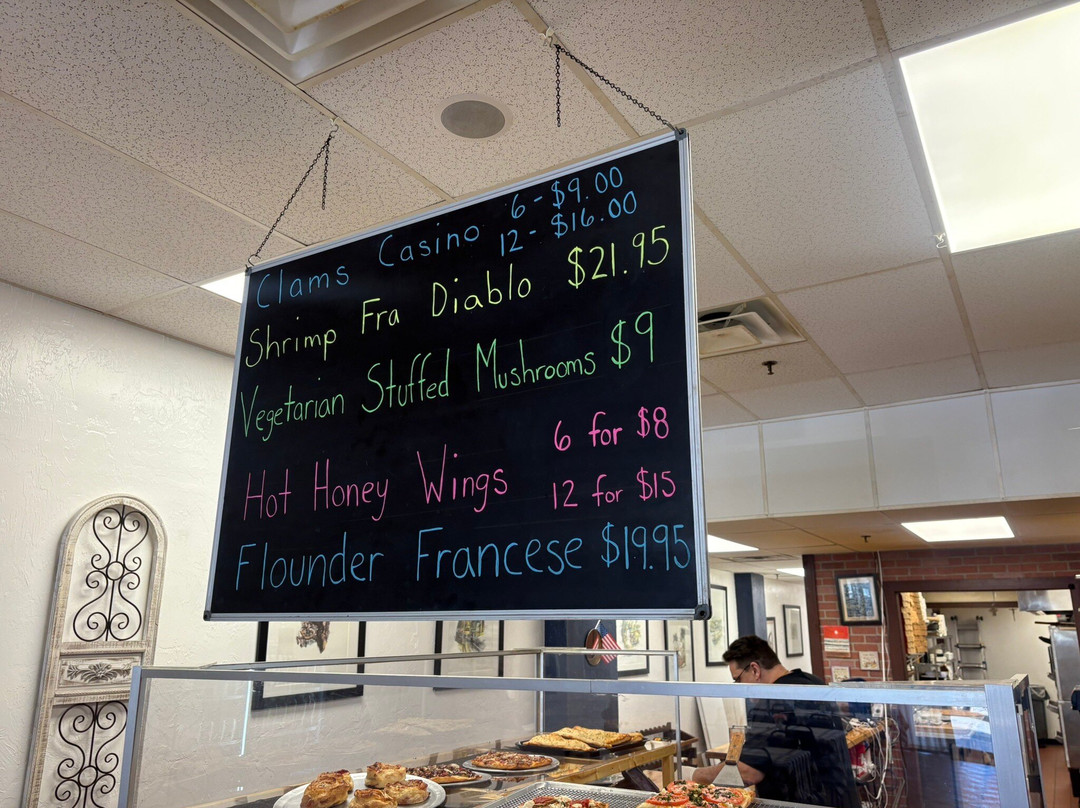 Clams Casino 6 - $9.00
12 - $16.00
Shrimp Fra Diablo $21.95
Vegetarian Stuffed Mushrooms $9
Hot Honey Wings 6 for $8
12 for $15
Flounder Francese $19.95